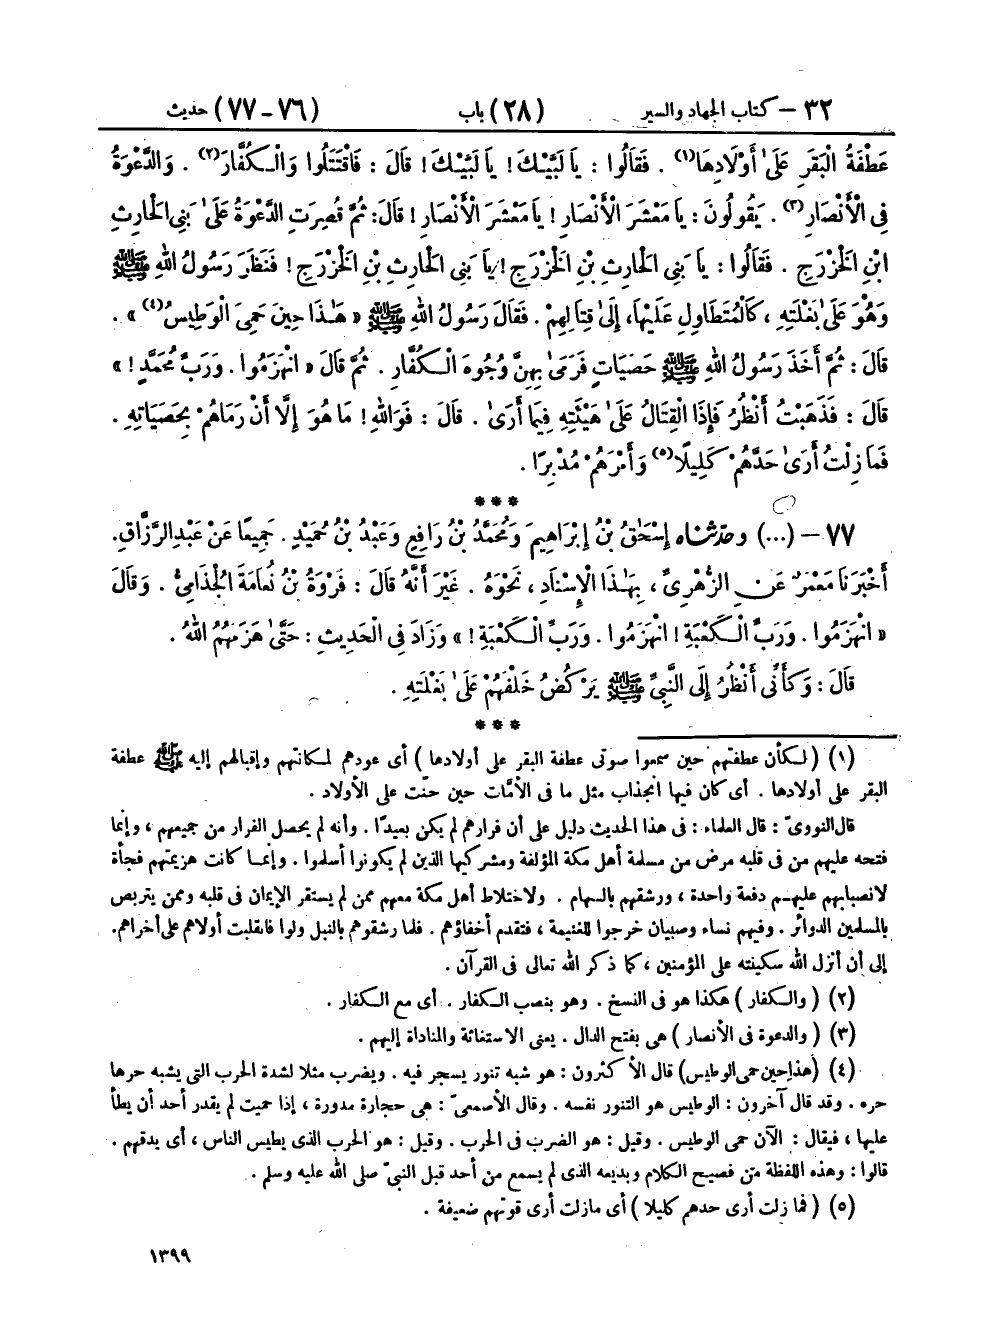 ٣٢ – كتاب الجهاد والسير (٢٨) باب (٧٦ - ٧٧) حديث
عَطْفَةُ الْبَقَرِ عَلَىٰ أَوْلَادِهَا(١) . فَقَالُوا : يَا لَبَّيْكَ ! يَا لَبَّيْكَ ! قَالَ : فَاقْتَتَلُوا وَالْكُفَّارَ(٢) . وَالدَّعْوَةُ
فِي الْأَنْصَارِ(٣) . يَقُولُونَ : يَا مَعْشَرَ الْأَنْصَارِ ! يَا مَعْشَرَ الْأَنْصَارِ ! قَالَ : ثُمَّ قُصِرَتِ الدَّعْوَةُ عَلَىٰ بَنِي الْحَارِثِ
ابْنِ الْخَزْرَجِ . فَقَالُوا : يَا بَنِي الْحَارِثِ بْنِ الْخَزْرَجِ ! يَا بَنِي الْحَارِثِ بْنِ الْخَزْرَجِ ! فَنَظَرَ رَسُولُ اللهِ ﷺ
وَهُوَ عَلَىٰ بَغْلَتِهِ ، كَالْمُتَطَاوِلِ عَلَيْهَا، إِلَىٰ قِتَالِهِمْ . فَقَالَ رَسُولُ اللهِ ﷺ « هَـٰذَا حِينَ حَمِيَ الْوَطِيسُ(٤) » .
قَالَ : ثُمَّ أَخَذَ رَسُولُ اللهِ ﷺ حَصَيَاتٍ فَرَمَىٰ بِهِنَّ وُجُوهَ الْكُفَّارِ . ثُمَّ قَالَ « انْهَزَمُوا . وَرَبِّ مُحَمَّدٍ ! »
قَالَ : فَذَهَبْتُ أَنْظُرُ فَإِذَا الْقِتَالُ عَلَىٰ هَيْئَتِهِ فِيمَا أَرَىٰ . قَالَ : فَوَاللهِ ! مَا هُوَ إِلَّا أَنْ رَمَاهُمْ بِحَصَيَاتِهِ .
فَمَا زِلْتُ أَرَىٰ حَدَّهُمْ كَلِيلًا(٥) وَأَمْرَهُمْ مُدْبِرًا .
***
٧٧ – (...) وحَدَّثَنَاه إِسْحَٰقُ بْنُ إِبْرَاهِيمَ وَمُحَمَّدُ بْنُ رَافِعٍ وَعَبْدُ بْنُ حُمَيْدٍ . جَمِيعًا عَنْ عَبْدِ الرَّزَّاقِ.
أَخْبَرَنَا مَعْمَرٌ عَنِ الزُّهْرِيِّ ، بِهَـٰذَا الْإِسْنَادِ ، نَحْوَهُ . غَيْرَ أَنَّهُ قَالَ : فَرْوَةُ بْنُ نُعَامَةَ الْجُذَامِيُّ . وَقَالَ
« انْهَزَمُوا . وَرَبِّ الْكَعْبَةِ ! انْهَزَمُوا . وَرَبِّ الْكَعْبَةِ ! » وَزَادَ فِي الْحَدِيثِ : حَتَّىٰ هَزَمَهُمُ اللهُ .
قَالَ : وَكَأَنِّي أَنْظُرُ إِلَى النَّبِيِّ ﷺ يَرْكُضُ خَلْفَهُمْ عَلَىٰ بَغْلَتِهِ .
***
(١) ( لكأن عطفتهم حين سمعوا صوتى عطفة البقر على أولادها ) أى عودهم لمكانتهم وإقبالهم إليه ﷺ عطفة
البقر على أولادها . أى كان فيها انجذاب مثل ما فى الأمّات حين حنّت على الأولاد .
قال النووىّ : قال العلماء : فى هذا الحديث دليل على أن فرارهم لم يكن بعيدًا . وأنه لم يحصل الفرار من جميعهم ، وإنما
فتحه عليهم من فى قلبه مرض من مسلمة أهل مكة المؤلفة ومشركيها الذين لم يكونوا أسلموا . وإنما كانت هزيمتهم فجأة
لانصبابهم عليهم دفعة واحدة ، ورشقهم بالسهام . ولاختلاط أهل مكة معهم ممن لم يستقر الإيمان فى قلبه وممن يتربص
بالمسلمين الدوائر . وفيهم نساء وصبيان خرجوا للغنيمة ، فتقدم أخفاؤهم . فلما رشقوهم بالنبل ولوا فانقلبت أولاهم على أخراهم.
إلى أن أنزل الله سكينته على المؤمنين ، كما ذكر الله تعالى فى القرآن .
(٢) ( والكفار ) هكذا هو فى النسخ . وهو بنصب الكفار . أى مع الكفار .
(٣) ( والدعوة فى الأنصار ) هى بفتح الدال . يعنى الاستغاثة والمناداة إليهم .
(٤) (هذا حين حمى الوطيس) قال الأكثرون : هو شبه تنور يسجر فيه . ويضرب مثلا لشدة الحرب التى يشبه حرها
حره . وقد قال آخرون : الوطيس هو التنور نفسه . وقال الأصمعىّ : هى حجارة مدورة ، إذا حميت لم يقدر أحد أن يطأ
عليها ، فيقال : الآن حمى الوطيس . وقيل : هو الضرب فى الحرب . وقيل : هو الحرب الذى يطيس الناس ، أى يدقهم .
قالوا : وهذه اللفظة من فصيح الكلام وبديعه الذى لم يسمع من أحد قبل النبىّ صلى الله عليه وسلم .
(٥) ( فما زلت أرى حدهم كليلا ) أى مازلت أرى قوتهم ضعيفة .
١٣٩٩